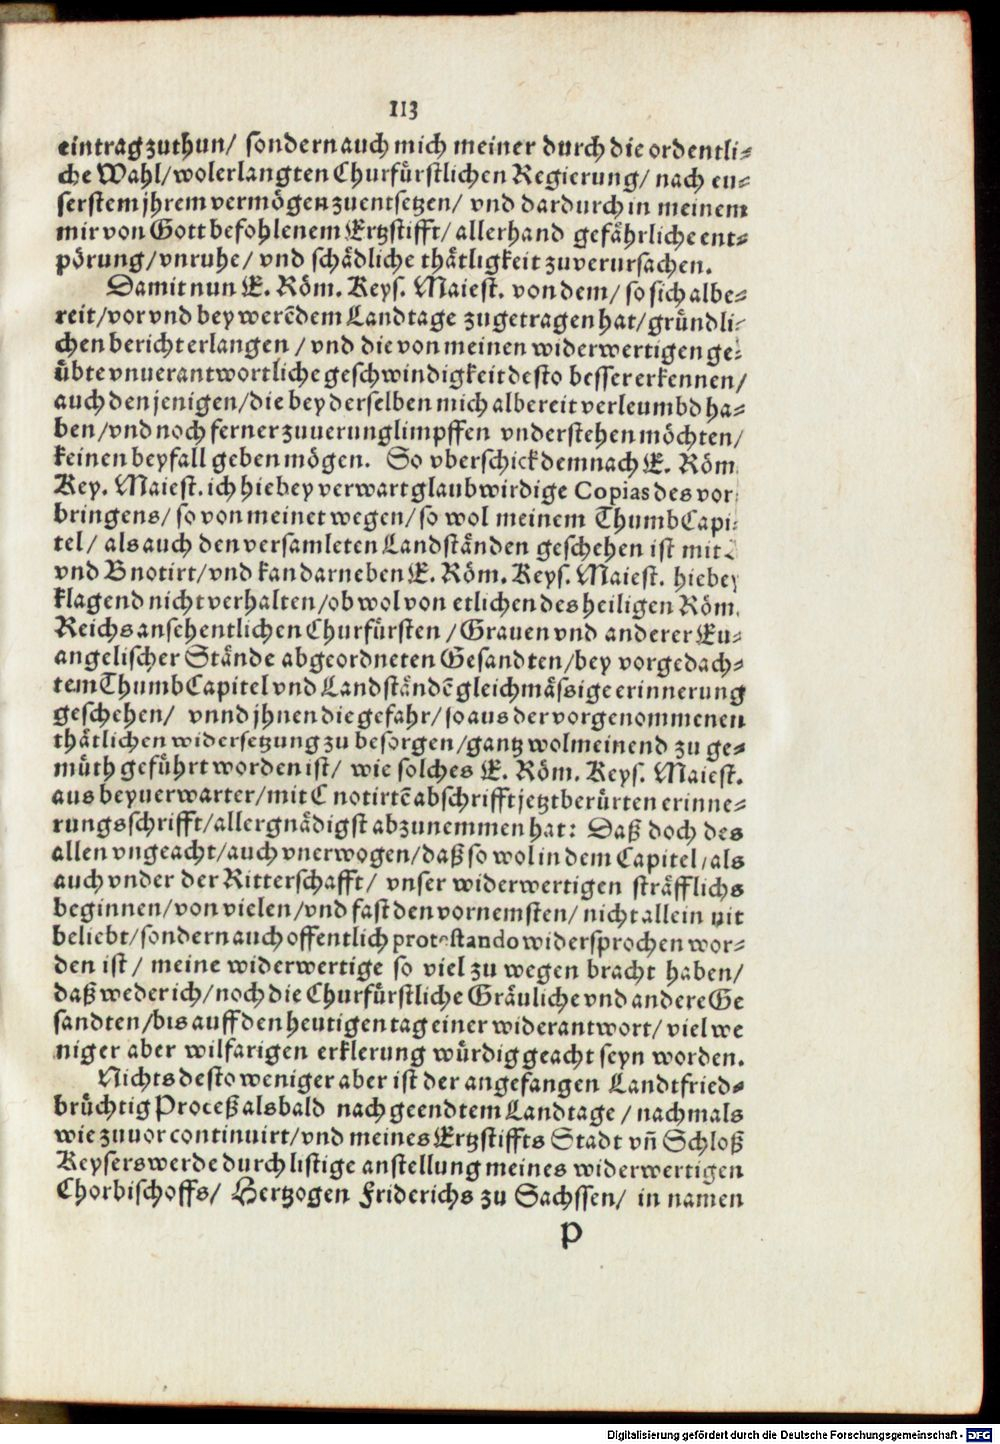 113
eintrag zuthun/ sondern auch mich meiner durch die ordentli-
che Wahl/ wolerlangten Churfürstlichen Regierung/ nach eu-
serstem jhrem vermögen zuentsetzen/ vnd dardurch in meinem
mir von Gott befohlenem Ertzstifft/ allerhand gefährliche ent-
pörung/ vnruhe/ vnd schädliche thätligkeit zuverursachen.
Damit nun E. Röm. Keys. Maiest. von dem/ so sich albe-
reit/ vor vnd bey werēdem Landtage zugetragen hat/ gründli-
chen bericht erlangen/ vnd die von meinen widerwertigen ge-
übte vnuerantwortliche geschwindigkeit desto besser erkennen/
auch den jenigen/ die bey derselben mich albereit verleumbd ha-
ben/ vnd noch ferner zuuerunglimpffen vnderstehen möchten/
keinen beyfall geben mögen. So vberschick demnach E. Röm.
Key. Maiest. ich hiebey verwart glaubwirdige Copias des vor-
bringens/ so von meinet wegen/ so wol meinem ThumbCapi-
tel/ als auch den versamleten Landständen geschehen ist mit
vnd B notirt/ vnd kan darneben E. Röm. Keys. Maiest. hiebey
klagend nicht verhalten/ ob wol von etlichen des heiligen Röm.
Reichs ansehentlichen Churfürsten/ Grauen vnd anderer Eu-
angelischer Stände abgeordneten Gesandten/ bey vorgedach-
tem ThumbCapitel vnd Landständē gleichmässige erinnerung
geschehen/ vnnd jhnen die gefahr/ so aus der vorgenommenen
thätlichen widersetzung zu besorgen/ gantz wolmeinend zu ge-
müth geführt worden ist/ wie solches E. Röm. Keys. Maiest.
aus beyuerwarter/ mit C notirtē abschrifft jetztberürten erinne-
rungsschrifft/ allergnädigst abzunemmen hat: Daß doch des
allen vngeacht/ auch vnerwogen/ daß so wol in dem Capitel/ als
auch vnder der Ritterschafft/ vnser widerwertigen sträfflichs
beginnen/ von vielen/ vnd fast den vornemsten/ nicht allein nit
beliebt/ sondern auch offentlich protestando widersprochen wor-
den ist/ meine widerwertige so viel zu wegen bracht haben/
daß weder ich/ noch die Churfürstliche Gräuliche vnd andere Ge
sandten/ bis auff den heutigen tag einer widerantwort/ viel we
niger aber wilfarigen erklerung würdig geacht seyn worden.
Nichts desto weniger aber ist der angefangen Landtfried-
brüchtig Proceß alsbald nach geendtem Landtage/ nachmals
wie zuuor continuirt/ vnd meines Ertzstiffts Stadt vn̄ Schloß
Keyserswerde durch listige anstellung meines widerwertigen
Chorbischoffs/ Hertzogen Friderichs zu Sachssen/ in namen
P
Digitalisierung gefördert durch die Deutsche Forschungsgemeinschaft - DFG